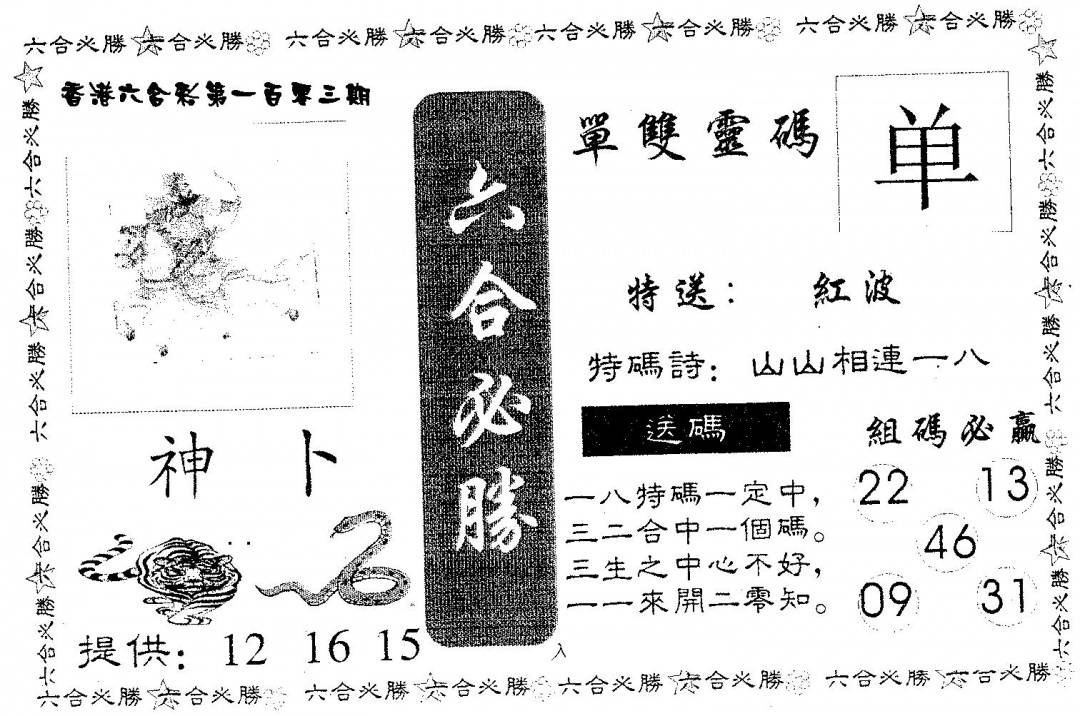 六合必勝 六合必勝 六合必勝 六合必勝 六合必勝 六合必勝 六合必勝 六合必勝
香港六合彩第一百零三期
六合必勝
單雙靈碼
单
特送：紅波
特碼詩：山山相連一八
送碼
一八特碼一定中，
三二合中一個碼。
三生之中心不好，
一一來開二零知。
組碼必贏
22 13
46
09 31
神卜
提供：12 16 15
入
六合必勝 六合必勝 六合必勝 六合必勝 六合必勝 六合必勝 六合必勝 六合必勝
六合必勝 六合必勝 六合必勝 六合必勝 六合必勝
六合必勝 六合必勝 六合必勝 六合必勝 六合必勝